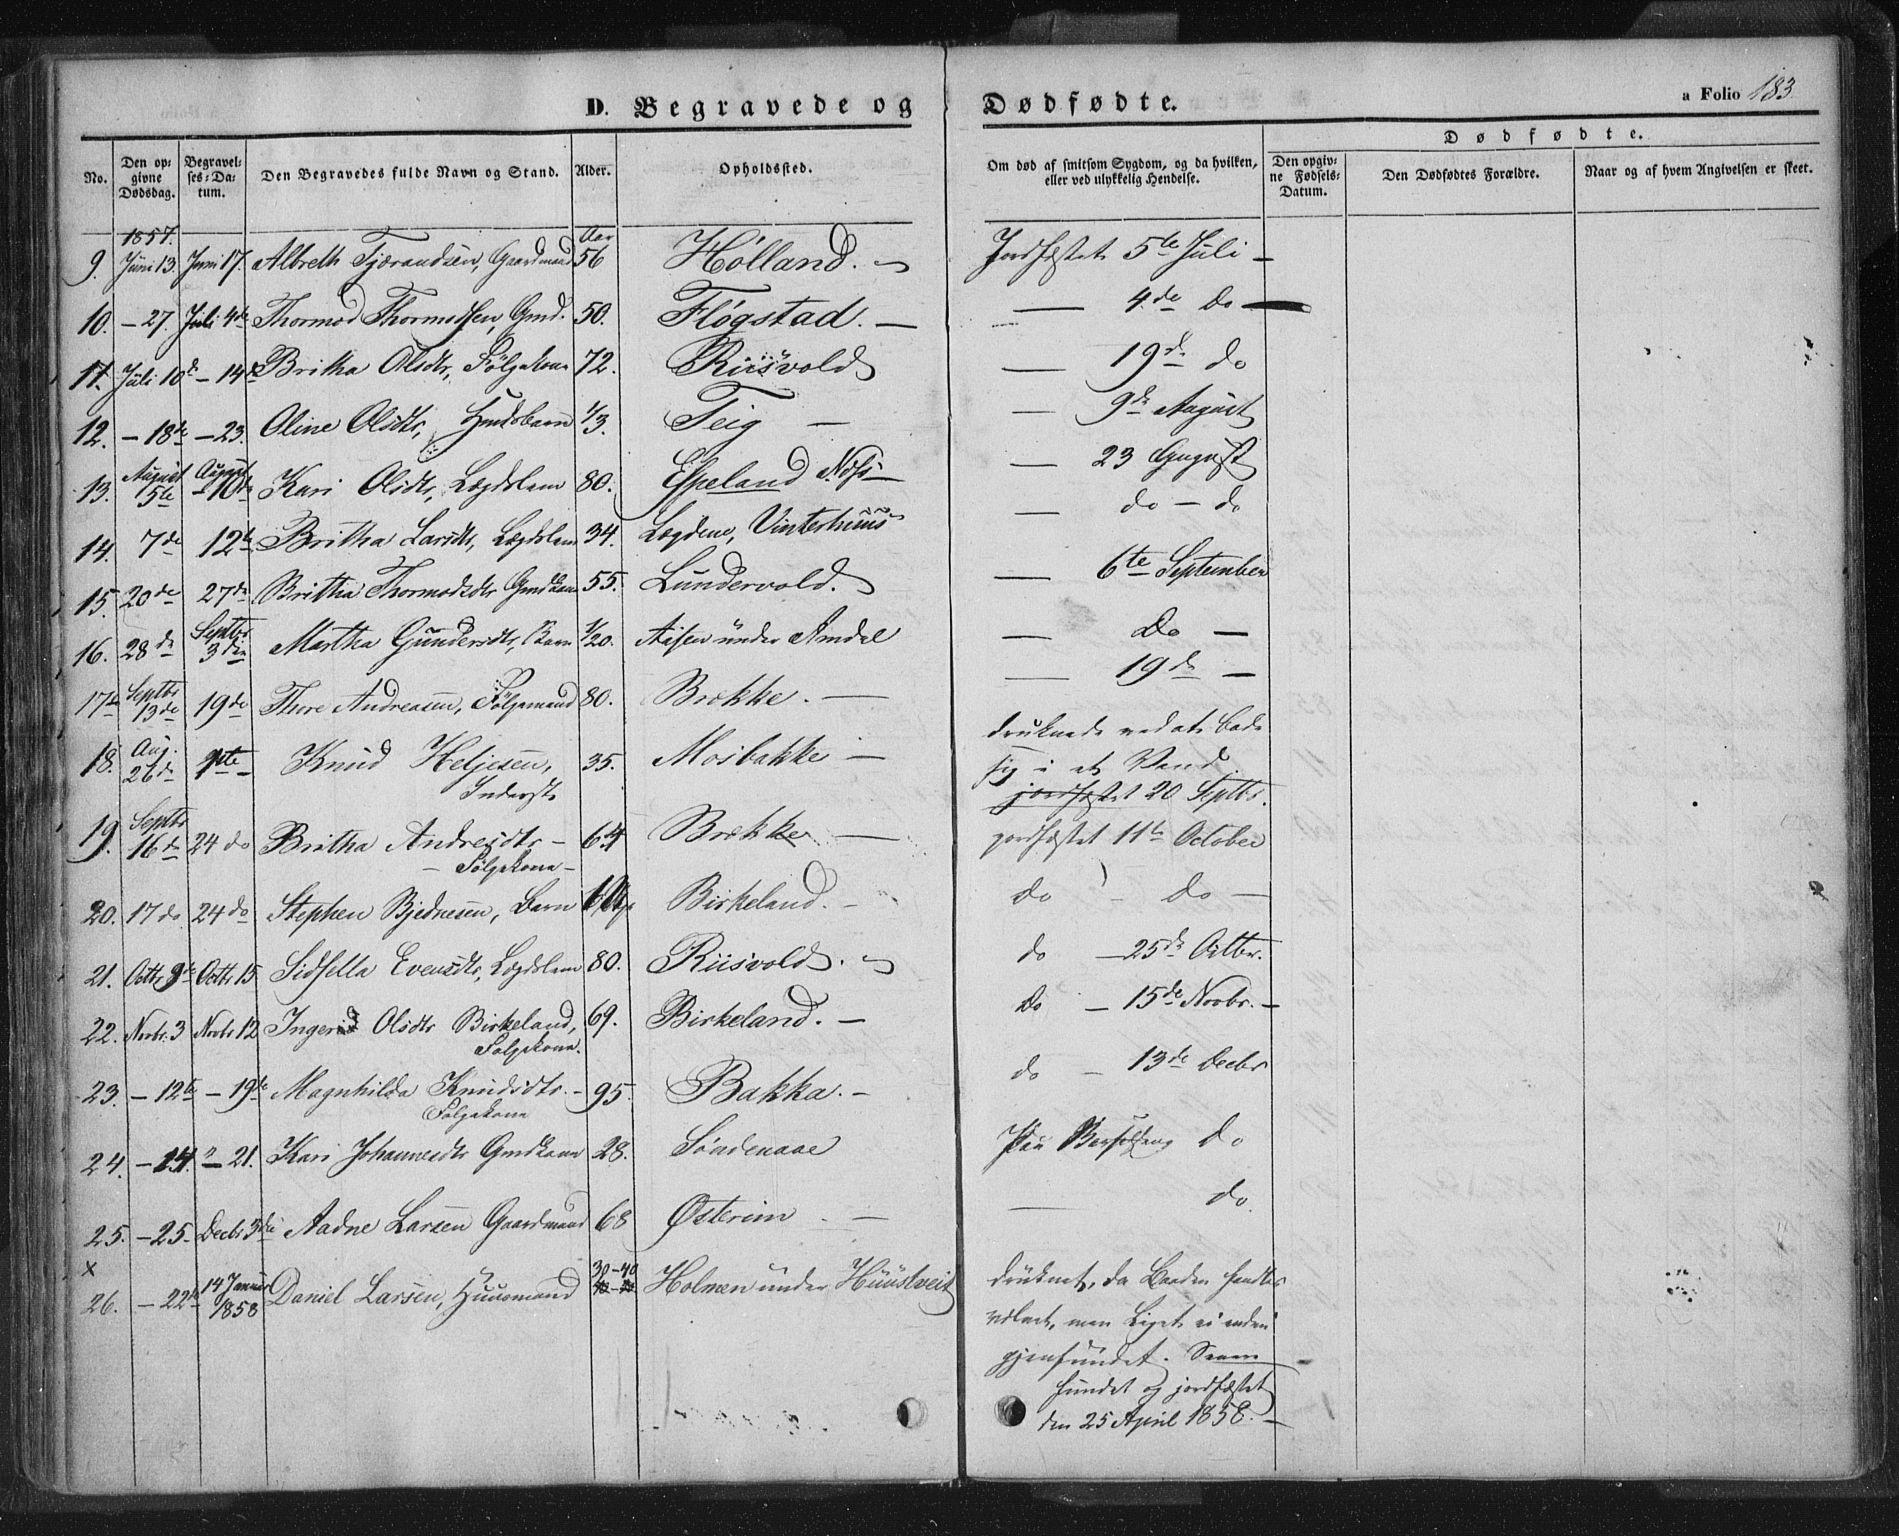 D. Begravede og Dødfødte.
a Folio 183
No.
Den opgivne Dødsdag.
Begravelses-Datum.
Den Begravedes fulde Navn og Stand.
Alder.
Opholdssted.
Om død af smitsom Sygdom, og da hvilken, eller ved ulykkelig Hendelse.
Dødfødte.
Den opgivne Fødsels-Datum.
Den Dødfødtes Forældre.
Naar og af hvem Angivelsen er skeet.
1857. Aar
9. Juni 13. Juni 17. Albreth Tjærandsen, Gaardmand 56 Hølland. Jordfæstet 5te Juli
10. — 27. Juli 4de Thormod Thormodsen, Gmd. 50. Fløgstad. — — 4de Do —
11. Juli 10de — 14de Britha Olsdtr, Følgekone 72. Riisvold — 19de do
12. — 18de — 23. Oline Olsdtr, Huusbarn 1/3. Teig — — 9de August
13. August 5te August 10de Kari Olsdtr, Lægdslem 80. Espeland Næss — 23 August
14. 7de 12te Britha Larsdtr, Lægdslem 34. Lægdene, Vinterhuus — do — do
15. 20de 27de Britha Thormodsdtr Gmdkone 55. Lundervold. — 6te September
16. 28de Septbr 3die Martha Gundersdtr, Barn 1/20. Aasen under Amdal — Do —
17de Septbr 13de 19de Thore Andreasen, Følgemand 80. Brekke. — — 19de —
18. Aug. 26de 1ste Knud Heljesen, 35. Mosbakke — druknede ved at bade
Inderst sig i et Vand.
jordfæstet 20 Septbr.
19. Septbr 16de 24 do Britha Andersdtr — 64 Brekke — jordfæstet 11te October
— Følgekone —
20. 17 do 24 do Stephen Bjednesen, Barn Birkeland. — do — do —
21. Octbr 9de Octbr 15 Sidsella Evensdtr, Lægdslem 80. Riisvold. do — 25de Octbr.
22. Novbr. 3 Novbr 12 Ingerid Olsdtr Birkeland, 69. Birkeland. — Do — 15de Novbr. —
Følgekone.
23. — 12te — 19de Magnhilda Knudsdtr. — 95. Bakka. — do — 13de Decbr
Følgekone
24. — 14. — 21. Kari Johannesdtr Gmdkone 28. Søndenaae Paa Barselseng do
25. — 25. Decbr 3die Aadne Larsen Gaardmand 68 Østerim — — do.
x
26. — 22de 14 Januar 1858 Daniel Larsen, Huusmand 30-40 Holmen under Huustveit druknet, da Baaden fandtes
men Liget ei endnu
gjenfundet. Senere
fundet og jordfæstet
den 25 April 1858. —